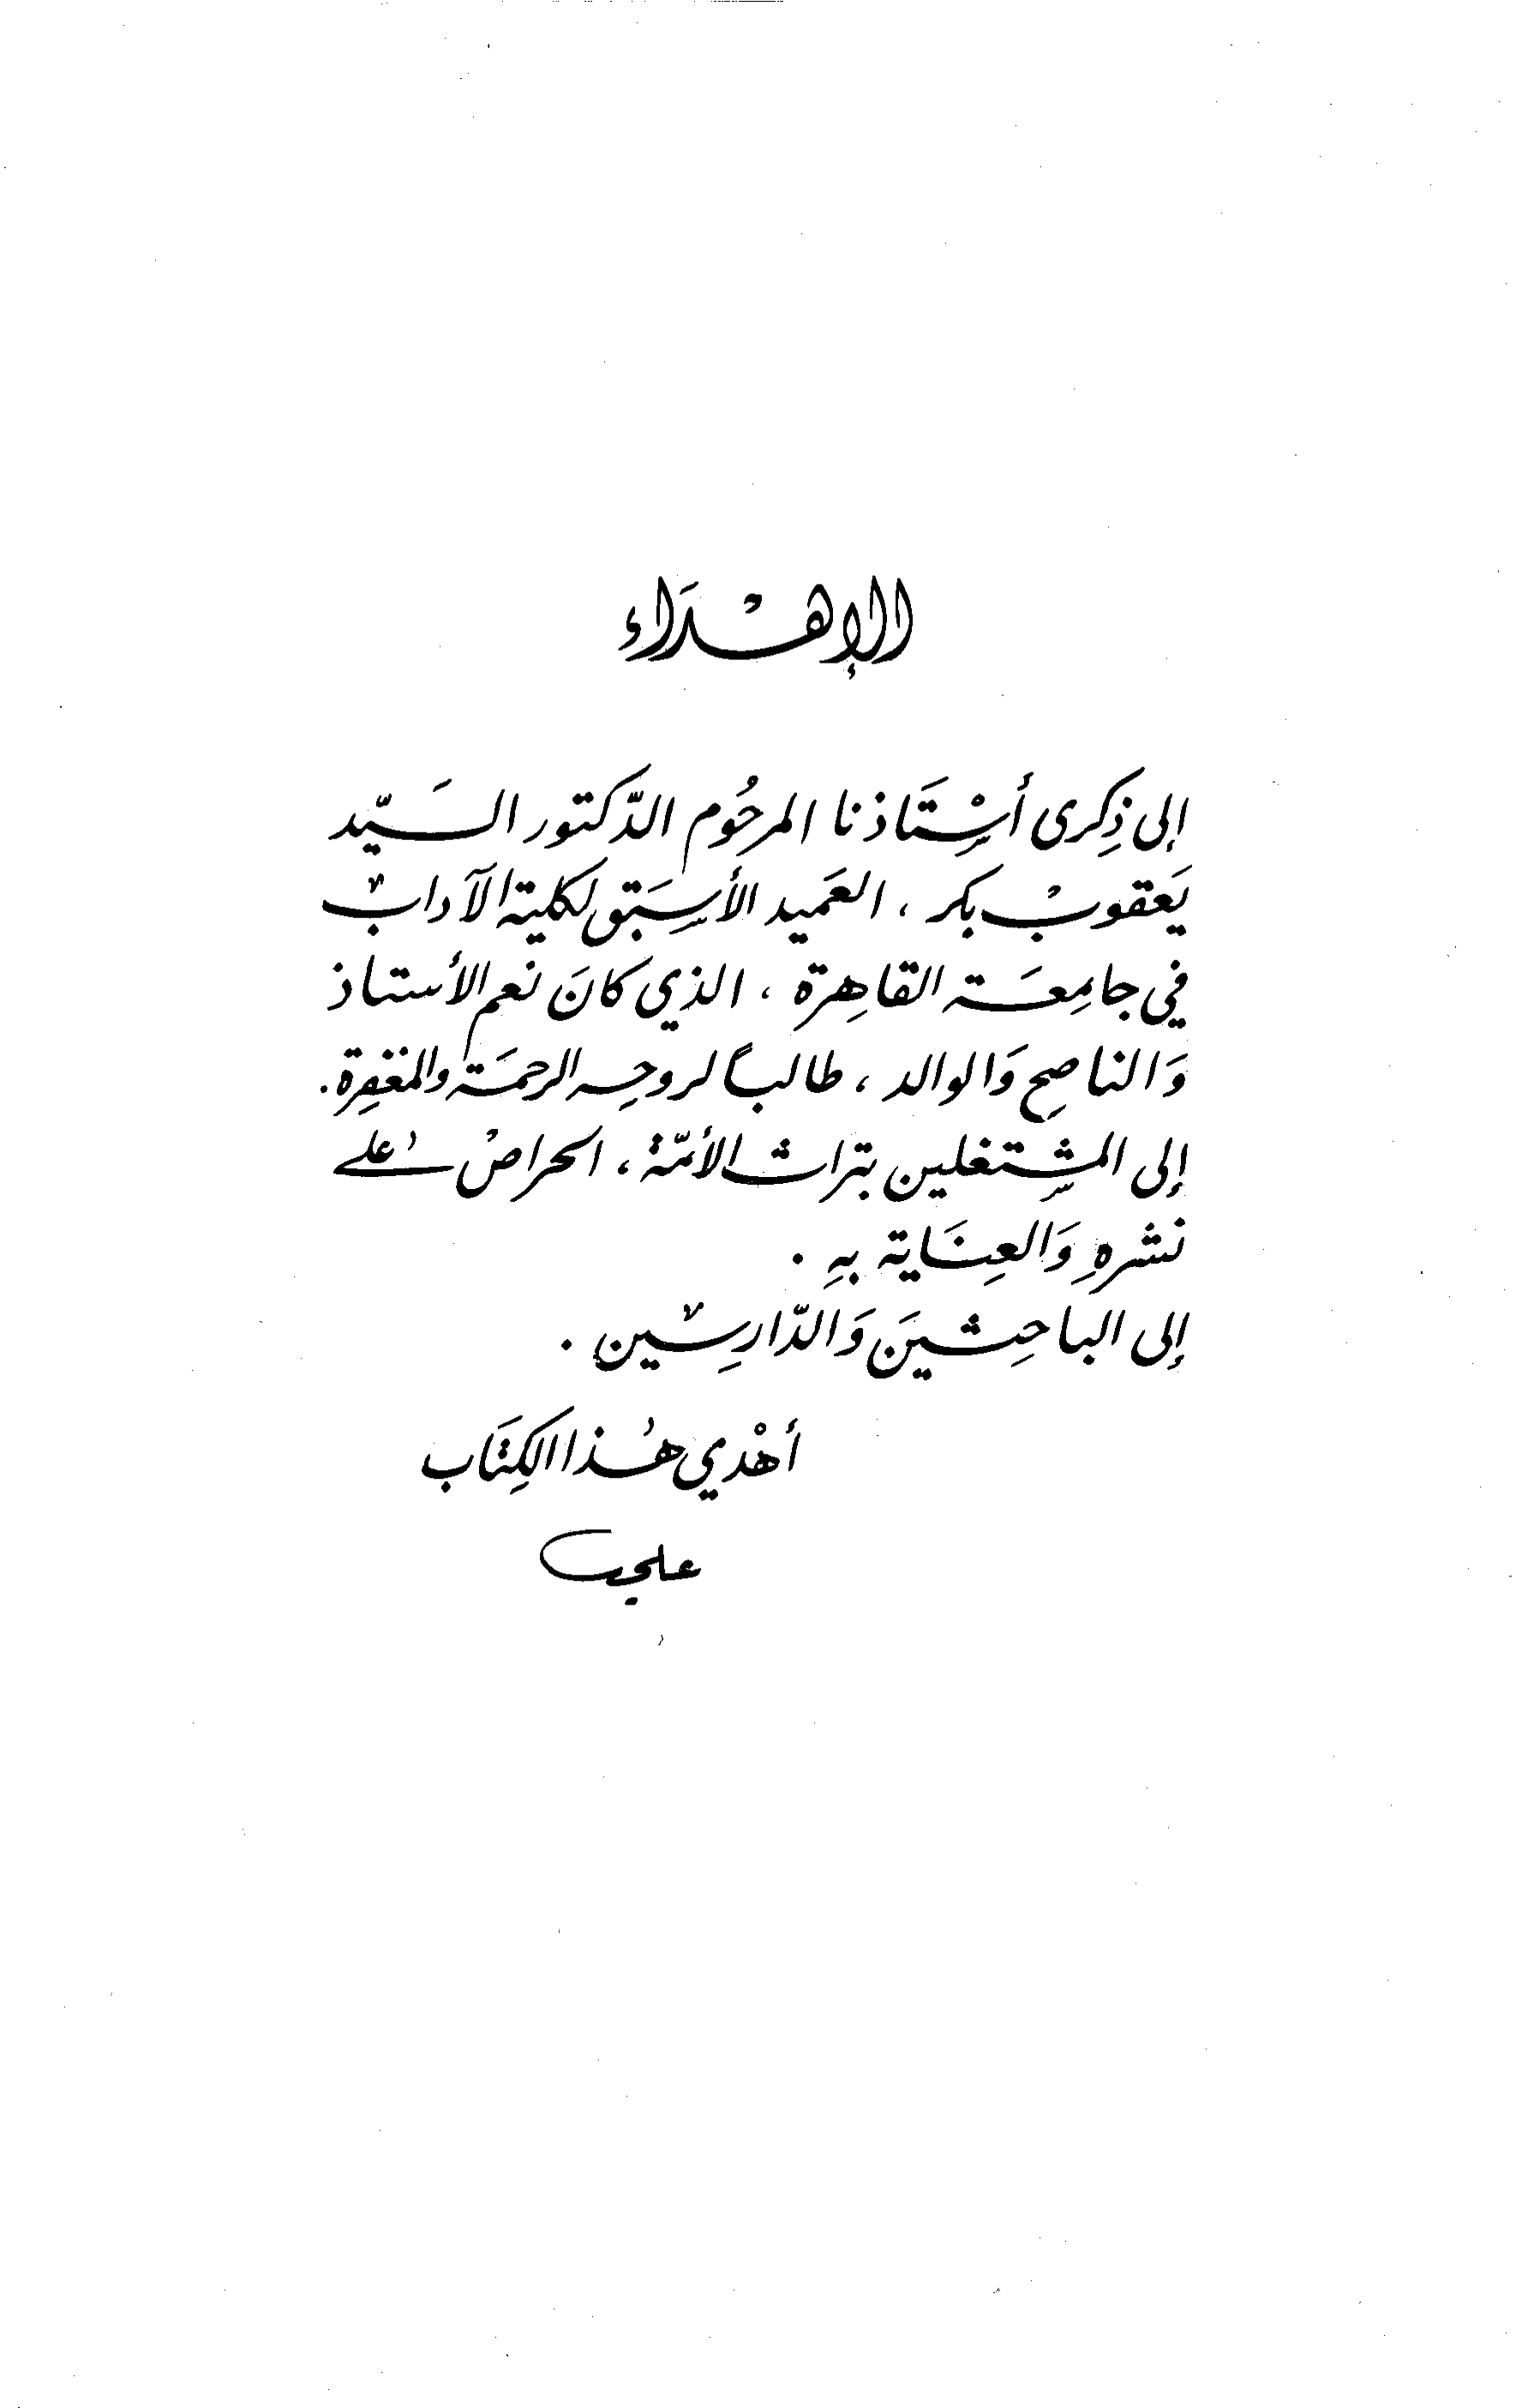 الإهْدَاء
إلى ذِكرى أسْتَاذنا المرحُوم الدّكتور السَيّد
يَعقوب بكر ، العَميد الأسبَق لكلية الآداب
في جامِعَة القاهِرة ، الذي كانَ نعم الأستاذ
وَالناصِح وَالوالد ، طالباً لروحِه الرحمَة والمغفِرة .
إلى المشتغلين بتراث الأمّة ، الحراص على
نشرهِ وَالعِنَاية بهِ .
إلى الباحِثينَ وَالدّارِسين .
أهْدي هٰذا الكِتَاب